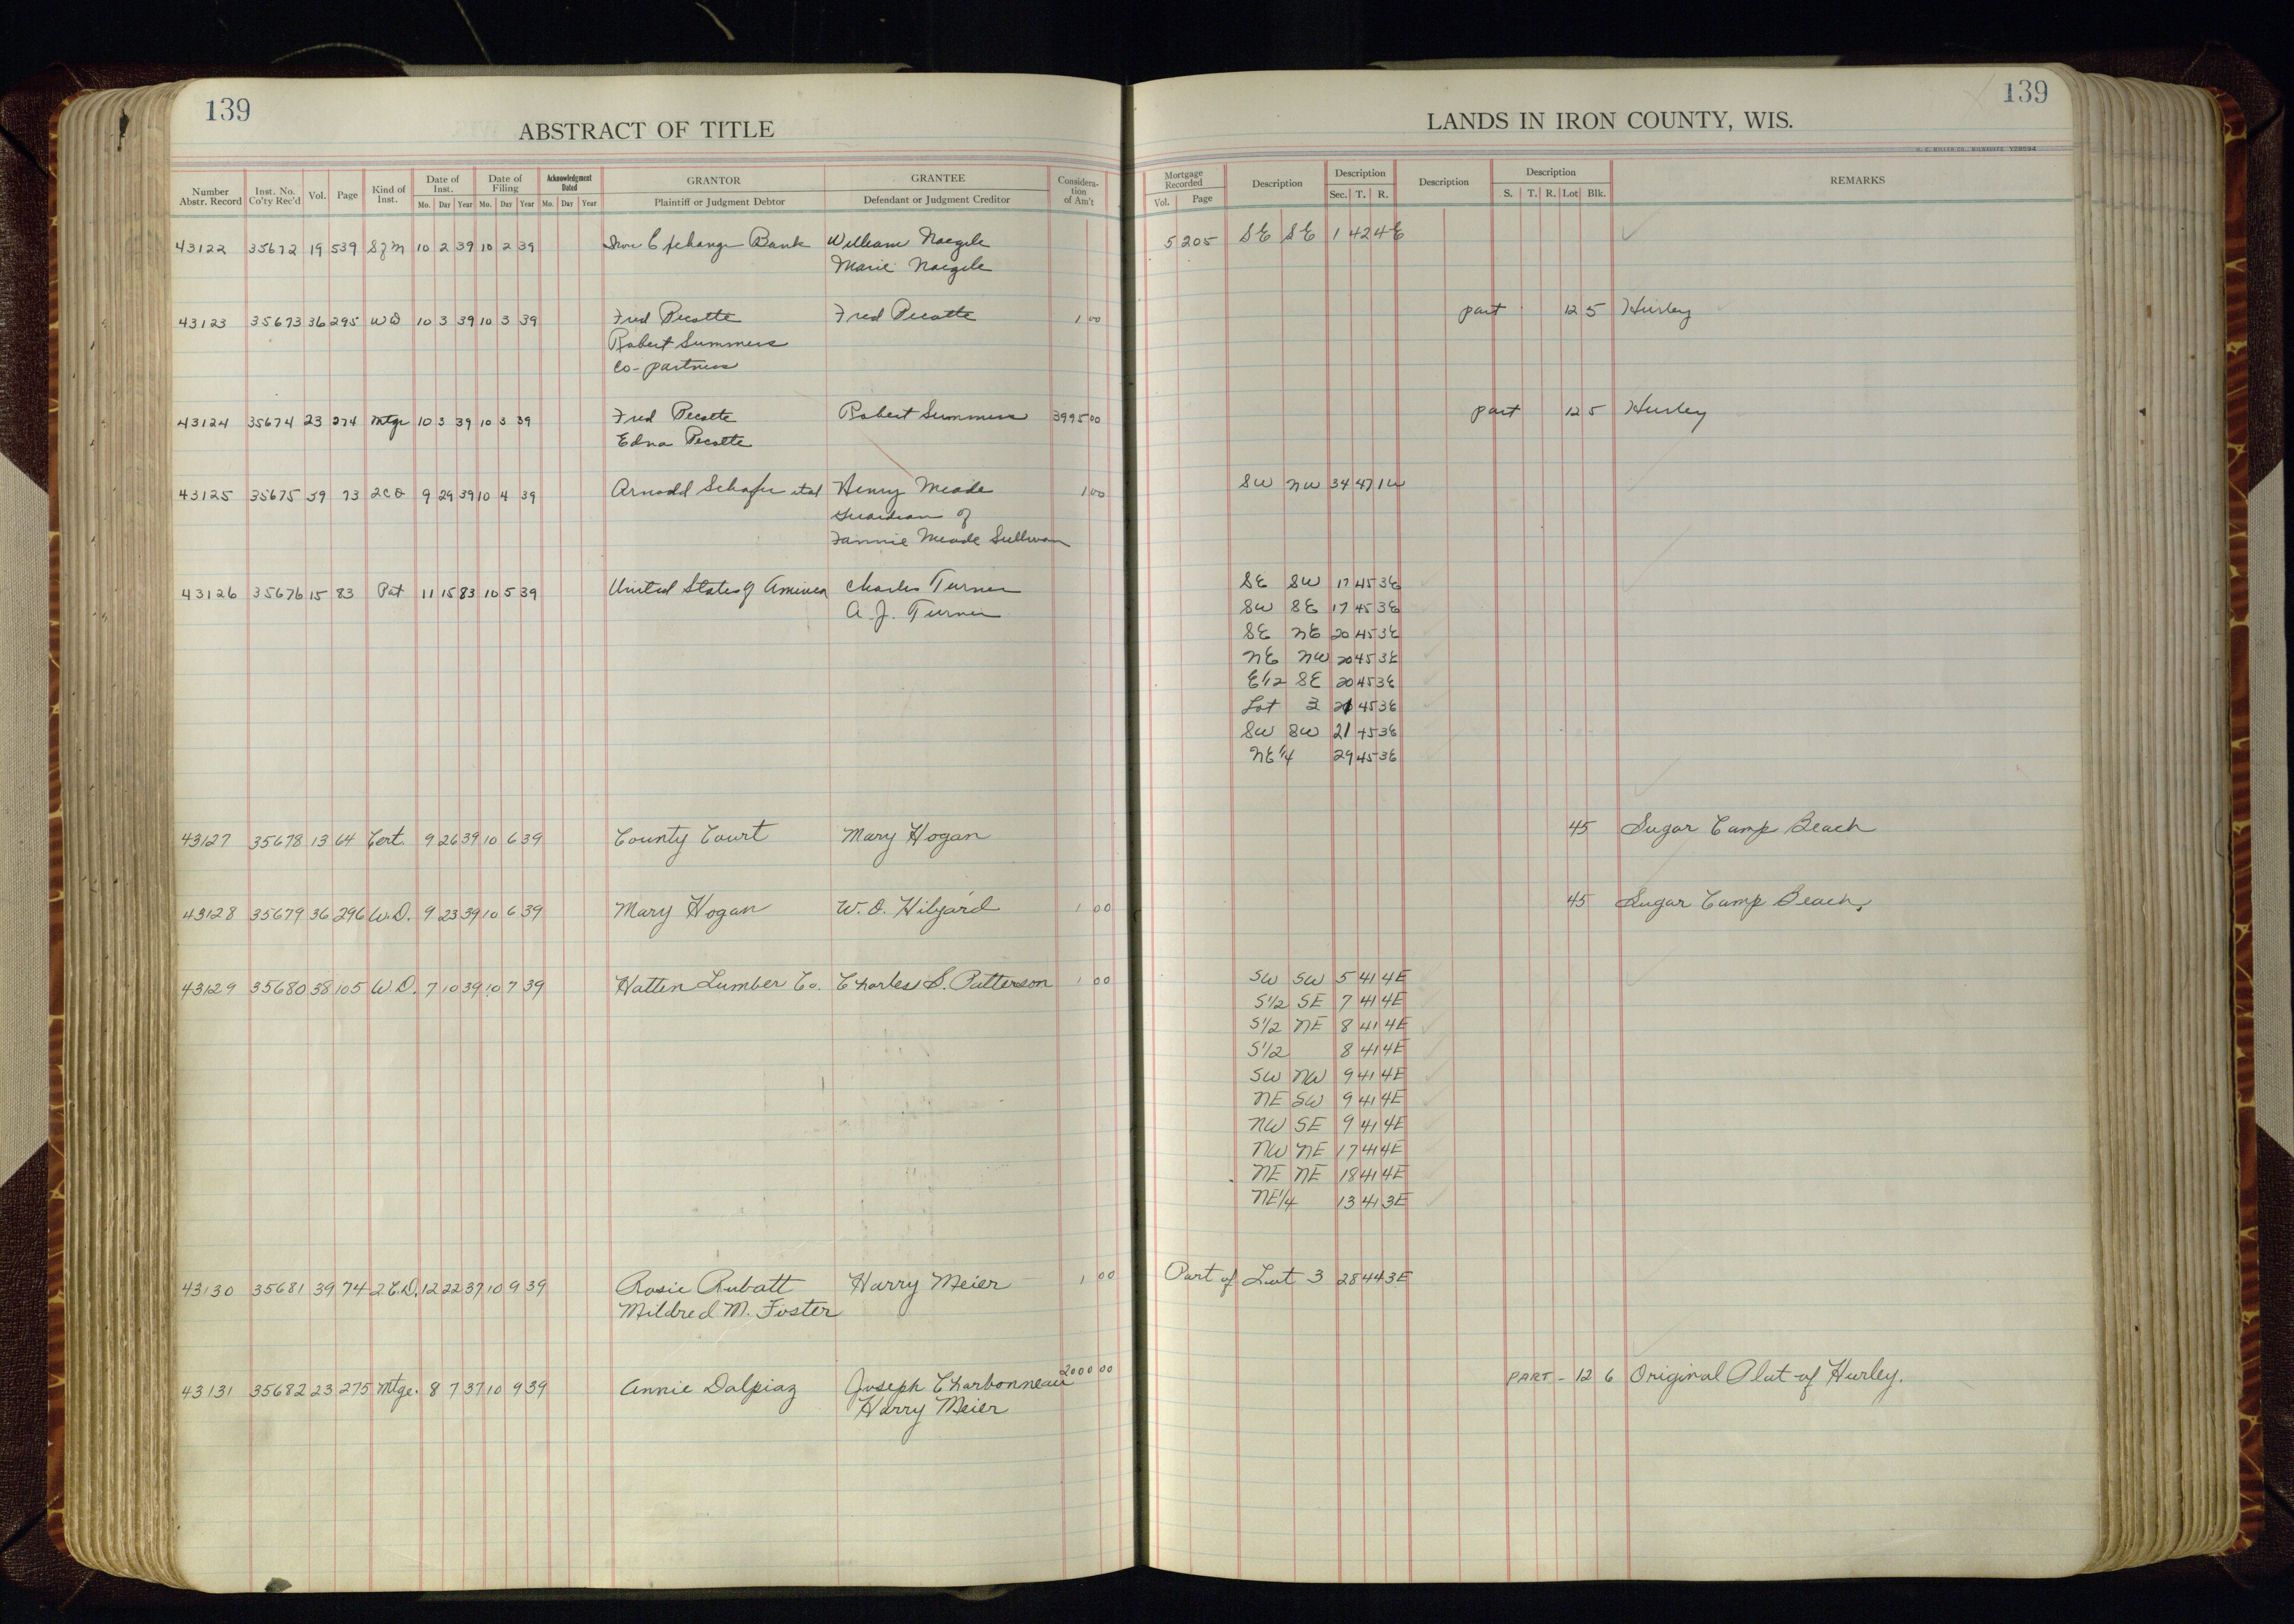 139
ABSTRACT OF TITLE
Number Abstr. Record Inst. No. Co'ty Rec'd Vol. Page Kind of Inst. Date of Inst. Mo. Day Year Date of Filing Mo. Day Year Acknowledgment Dated Mo. Day Year GRANTOR Plaintiff or Judgment Debtor GRANTEE Defendant or Judgment Creditor Consideration of Am't
43122 35672 19 539 S of M 10 2 39 10 2 39 Iron Exchange Bank William Naegele
Marie Naegele
43123 35673 36 295 WD 10 3 39 10 3 39 Fred Pecotte Fred Pecotte 1 00
Robert Summers
Co-partners
43124 35674 23 274 Mtge 10 3 39 10 3 39 Fred Pecotte Robert Summers 3995 00
Edna Pecotte
43125 35675 39 73 2CD 9 29 39 10 4 39 Arnold Schafer etal Henry Meade 1 00
Guardian of
Fannie Meade Sullivan
43126 35676 15 83 Pat 11 15 83 10 5 39 United States of America Charles Turner
A. J. Turner
43127 35678 13 64 Cert. 9 26 39 10 6 39 County Court Mary Hogan
43128 35679 36 296 W.D. 9 23 39 10 6 39 Mary Hogan W. O. Hilyard 1 00
43129 35680 38 105 W.D. 7 10 39 10 7 39 Hatten Lumber Co. Charles S. Patterson 1 00
43130 35681 39 74 2.C.D. 12 22 37 10 9 39 Rosie Rubatt Harry Meier 1 00
Mildred M. Foster
43131 35682 23 275 Mtge. 8 7 37 10 9 39 Annie Dalpiaz Joseph Charbonneau 2000 00
Harry Meier
139
LANDS IN IRON COUNTY, WIS.
H. C. MILLER CO., MILWAUKEE
Mortgage Recorded Vol. Page Description Description Sec. T. R. Description Description S. T. R. Lot Blk. REMARKS
5 205 SE SE 1 42 4E
part 12 5 Hurley
part 12 5 Hurley
SW NW 34 47 1W
SE SW 17 45 3E
SW SE 17 45 3E
SE NE 20 45 3E
NE NW 20 45 3E
E1/2 SE 20 45 3E
Lot 3 21 45 3E
SW SW 21 45 3E
NE1/4 29 45 3E
45 Sugar Camp Beach
45 Sugar Camp Beach.
SW SW 5 41 4E
S1/2 SE 7 41 4E
S1/2 NE 8 41 4E
S1/2 8 41 4E
SW NW 9 41 4E
NE SW 9 41 4E
NW SE 9 41 4E
NW NE 17 41 4E
NE NE 18 41 4E
NE1/4 13 41 3E
Part of Lot 3 28 44 3E
PART - 12 6 Original Plat of Hurley.